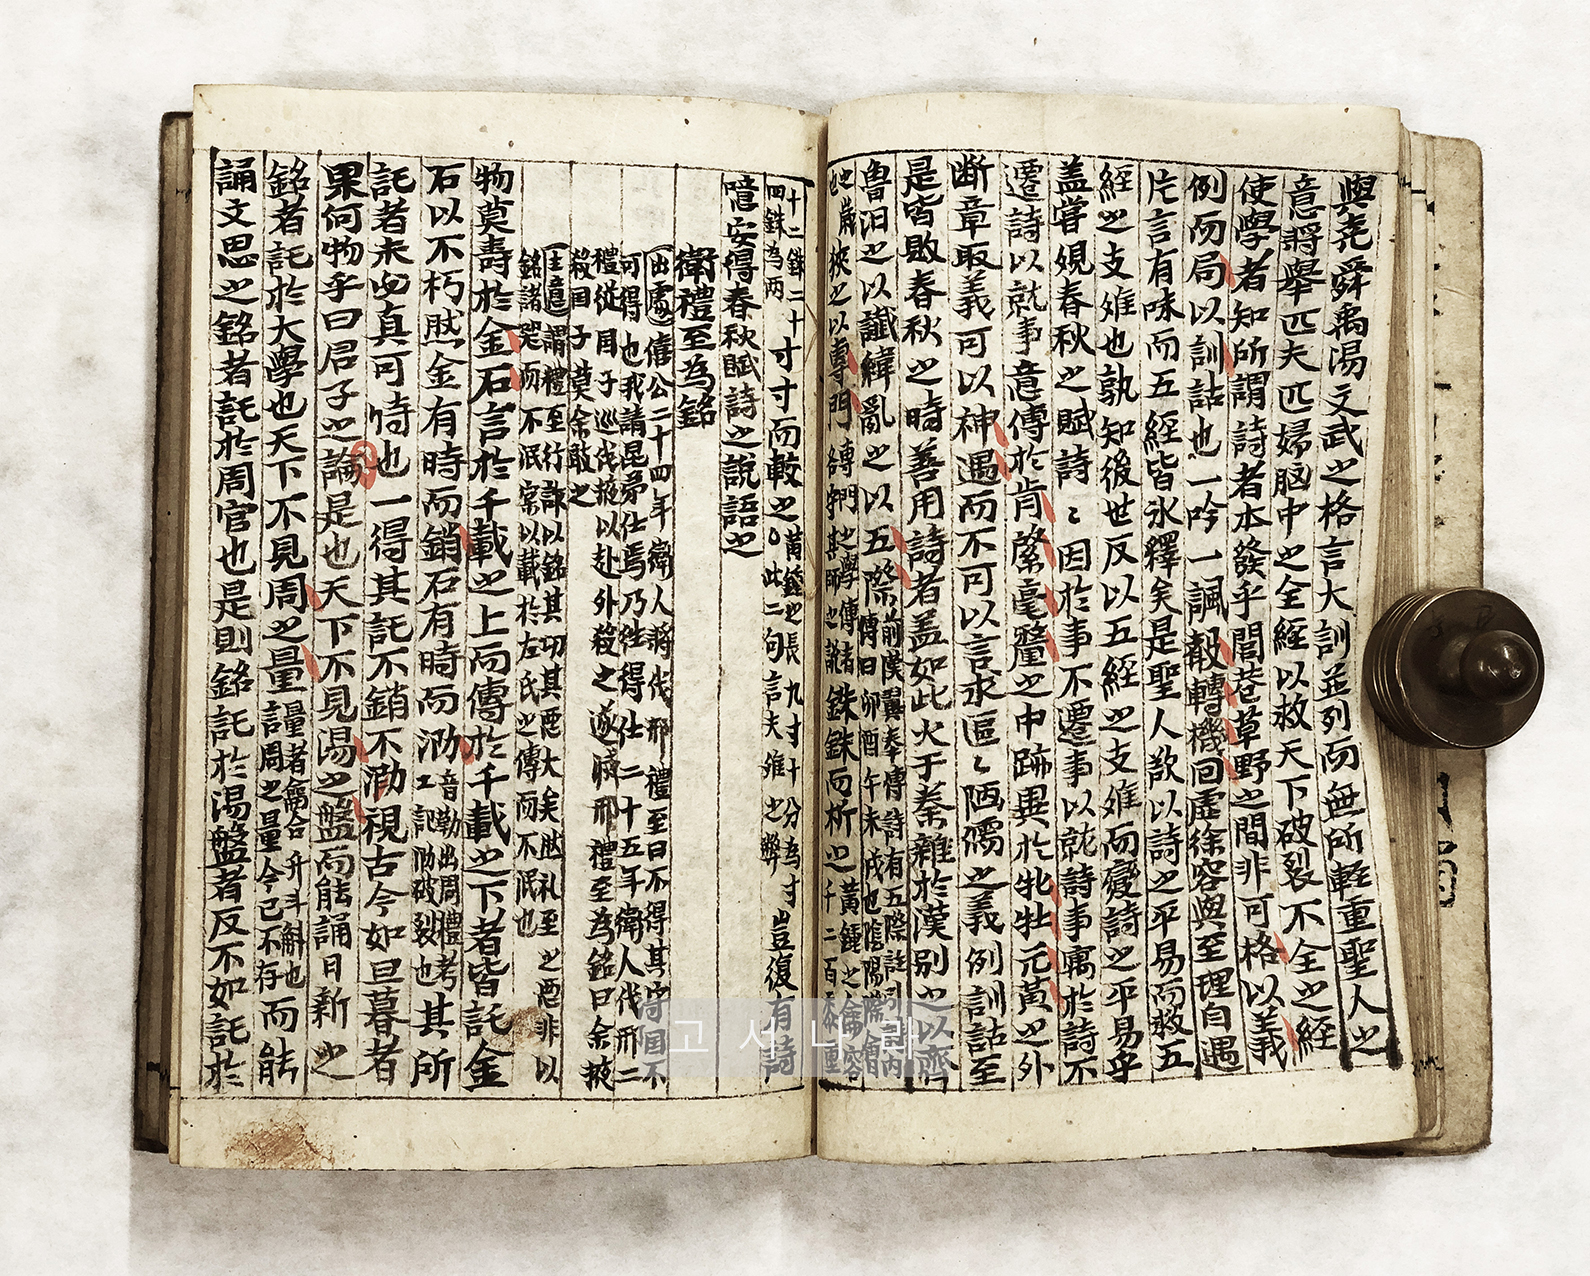 與堯舜禹湯文武之格言大訓並列而無所軽重聖人之
意將舉匹夫匹婦胸中之全經以救天下破裂不全之經
使學者知所謂詩者本發乎閭巷草野之間非可格以義
例而局以訓詁也一吟一諷聲轉機回虛徐容與至理自遇
片言有味而五經皆氷釋矣是聖人欲以詩之平易而救五
經之支雖也孰知後世反以五經之支雖而變詩之平易乎
盖甞覌春秋之賦詩〻因於事不遷事以就詩事寓於詩不
遷詩以就事意傳於肯綮毫釐之中跡異於牝牡元黃之外
断章取義可以神遇而不可以言求區〻陋儒之義例訓詁至
是皆敗春秋之時善用詩者盖如此火于秦雜於漢别之以齊
魯汨之以讖緯亂之以五際前漢翼奉傳詩有五際註引內
傳曰卯酉午未戌也陰陽際會
之歲
也
挾之以專門專門之學傳者
各守其師之說
銖銖而析之黃鍾之龠容
千二百黍重
十二銖二十
四銖為兩
寸寸而較之黃鍾之長九寸十分為寸
此二句言支雖之弊
豈復有詩
噫安得春秋賦詩之説語之
衛禮至為銘
(出處)僖公二十四年衛人將伐邢禮至曰不得其守国不
可得也我請昆弟仕焉乃徃得仕二十五年衛人伐邢二
禮從囯子巡伐掖以赴外殺之遂㓕邢禮至為銘曰余掖
殺囯子莫余敢之
(主意)謂禮至行詐以銘其功其悪大矣然礼至之悪非以
銘諸器而不泯實以載於左氏之傳而不泯也
物莫壽於金石言於千載之上而傳於千載之下者皆託金
石以不朽然金有時而銷石有時而泐音勒出周禮考
工記泐破裂也
其所
託者未必真可恃也一得其託不銷不泐視古今如旦暮者
果何物乎曰君子之論是也天下不見湯之盤而能誦日新之
銘者託於大學也天下不見周之量量者龠合升斗斛也
註周之量今已不存
而能
誦文思之銘者託於周官也是則銘託於湯盤者反不如託於
고서나라